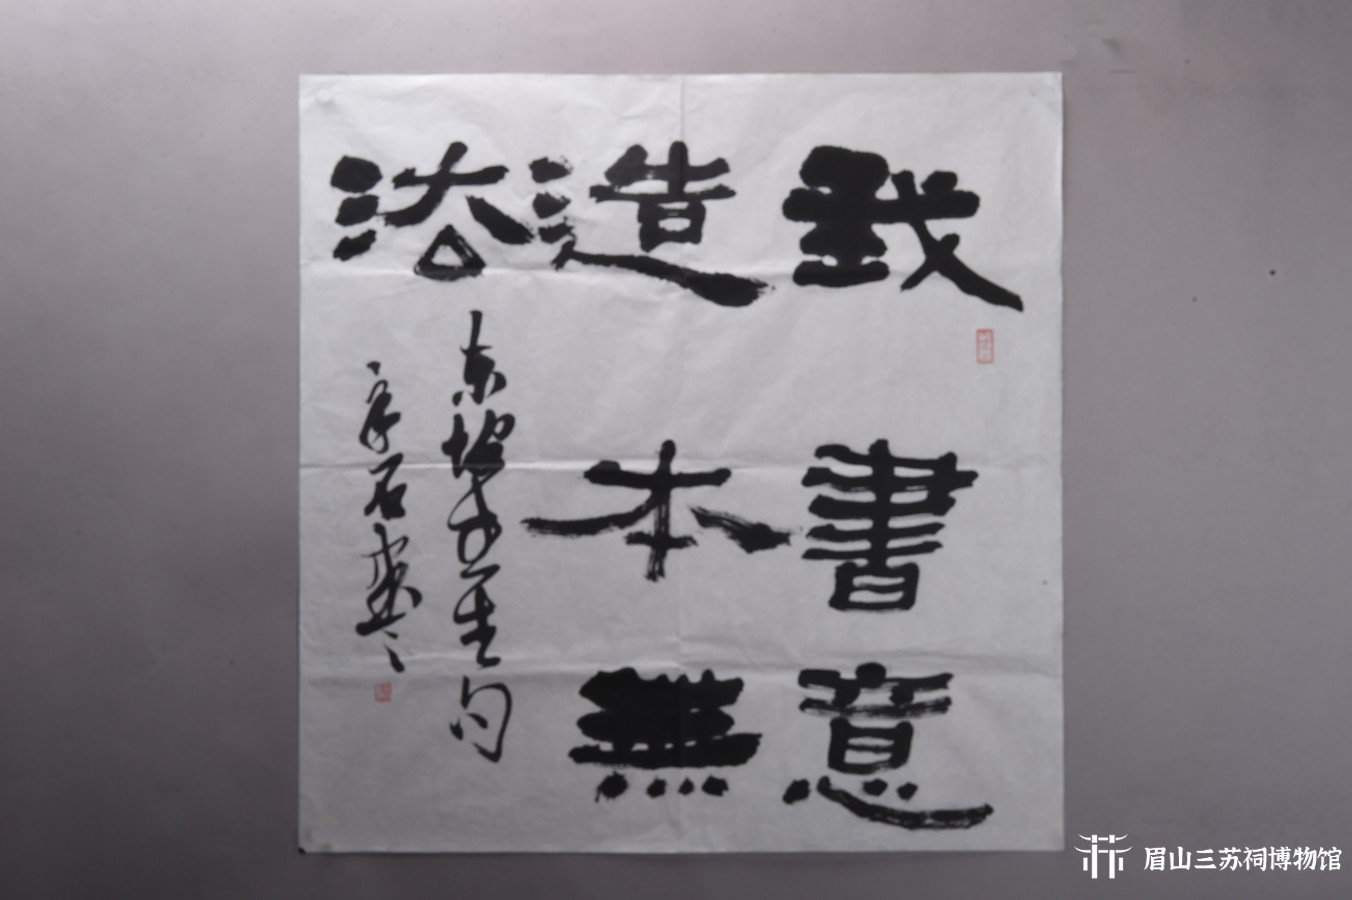 我書意
造本無
法
东坡先生句
石
眉山三苏祠博物馆